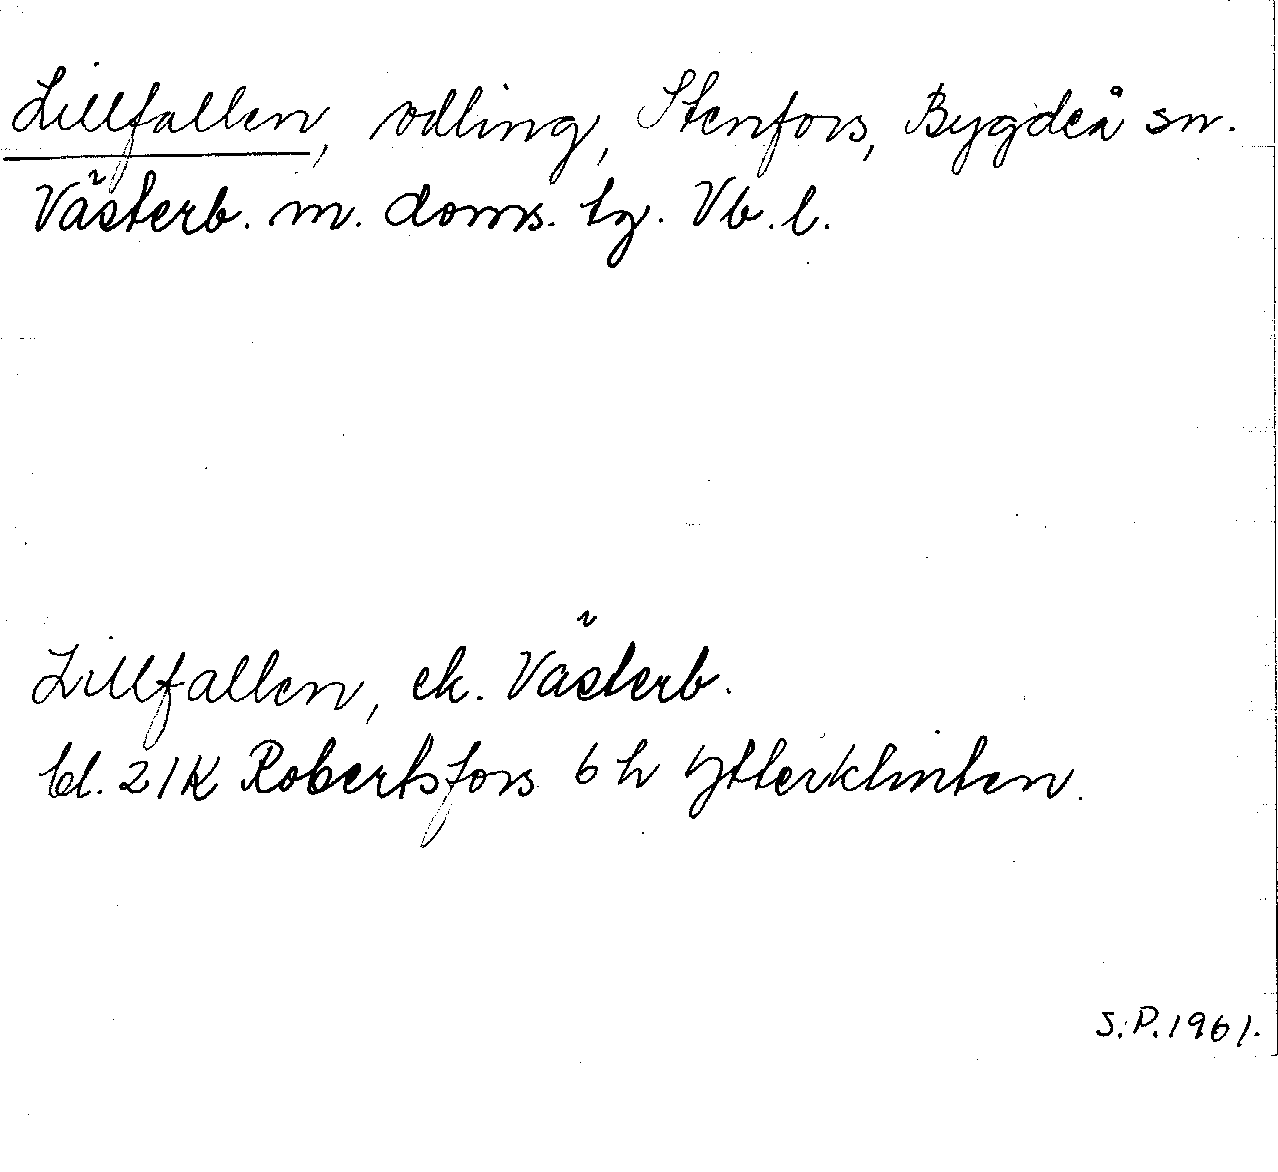 Lillfallen, odling, Stenfors, Bygdeå sn.
Västerb. m. doms. tg. Vb. l.
Lillfallen, ek. Västerb.
bl. 21K Robertsfors 6 h Ytterklinten.
S.P. 1961.